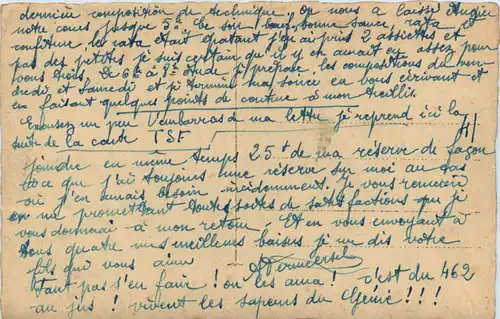 dernière composition de technique. On nous a laissé étudier
notre cours jusque 5h. Le soir bœuf, bonne sauce, rata et
confiture, la rata était épatant j'en ai pris 2 assiettes et
pas des petites je suis certain qu'il y en aurait eu assez pour
vous trois. De 6h à 8h étude, je prépare les compositions du ven-
dredi et samedi et je termine ma soirée en vous écrivant et
en faisant quelques points de couture à mon treillis.
Excusez un peu l'embarras de ma lettre je reprend ici la
suite de la carte TSF
joindre en même temps 25f de ma réserve de façon
à ce que j'ai toujours une réserve sur moi au cas
où j'en aurais besoin évidemment. Je vous remercie
en vous promettant toutes sortes de satisfactions que je
vous donnerai à mon retour. Et en vous envoyant à
tous quatre mes meilleurs baisers je me dis votre
fils qui vous aime
Vermeersch
Faut pas s'en faire! on les aura! c'est du 462
au jus! vivent les sapeurs du Génie!!!